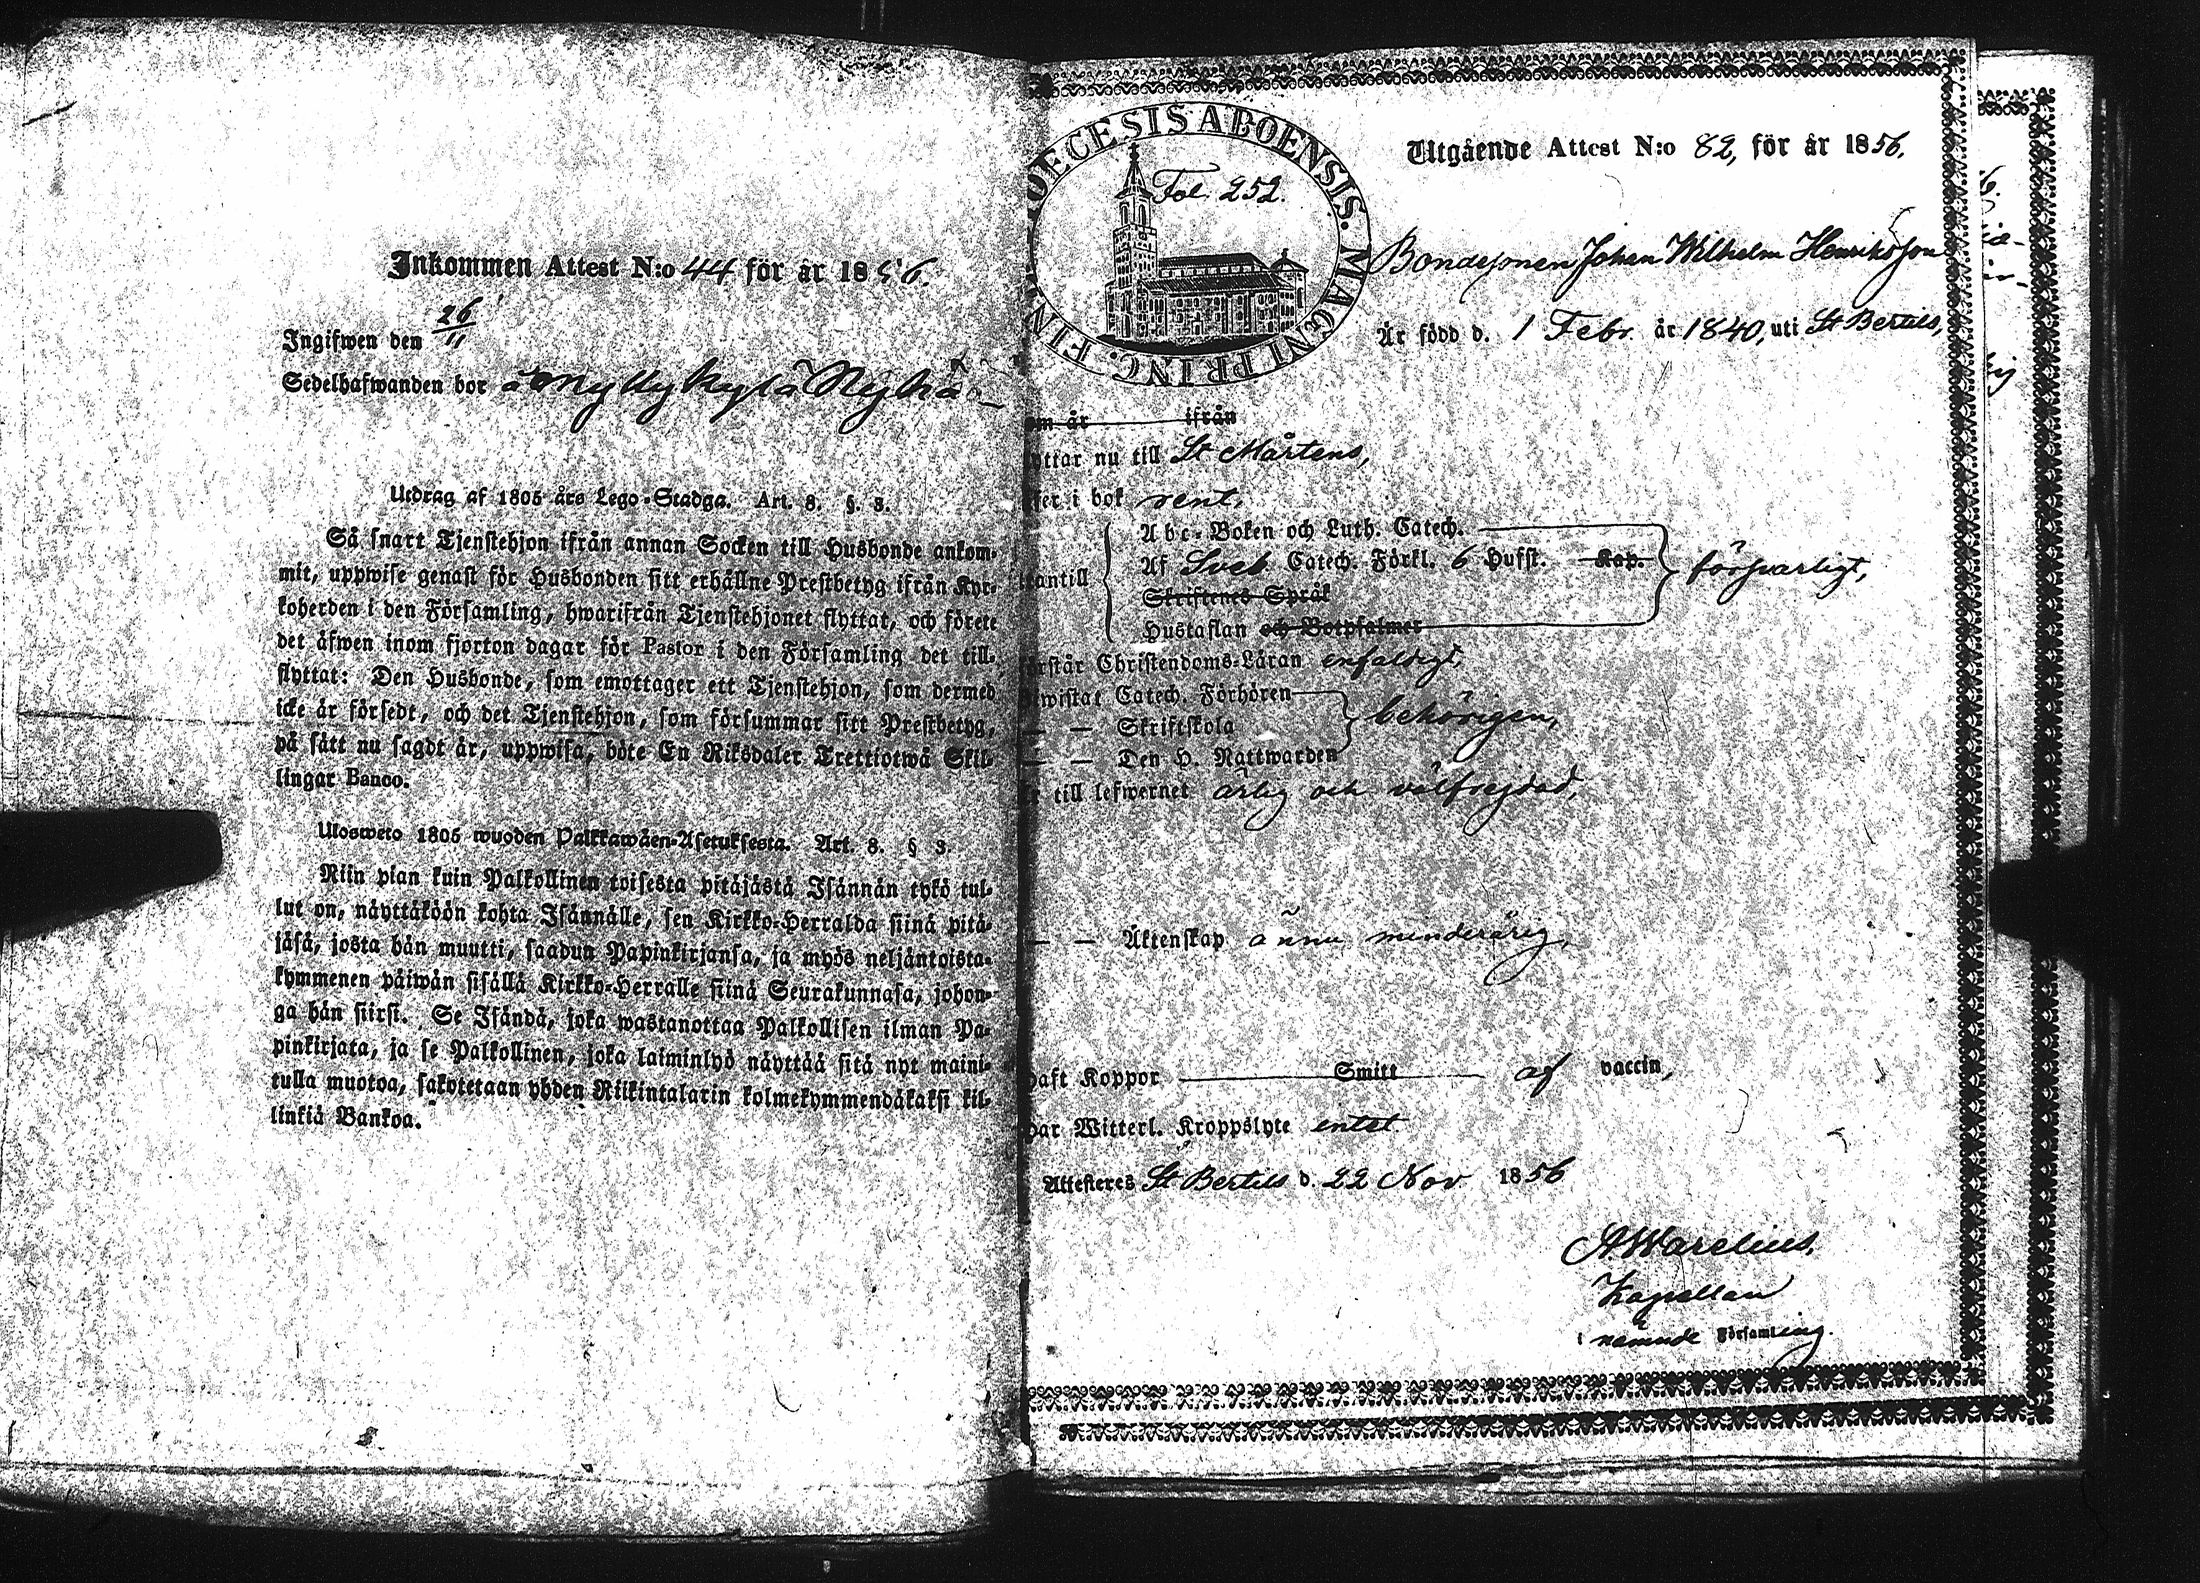 Inkommen Attest N:o 44 för år 1856.
Ingifwen den 26/11
Sedelhafwanden bor å Myllykylä Nyhä
Utdrag af 1805 års Lego-Stadga. Art. 8. §. 3.
Så snart Tjenstehjon ifrån annan Socken till Husbonde ankom-
mit, uppwise genast för Husbonden sitt erhållne Prestbetyg ifrån Kyr-
koherden i den Församling, hwarifrån Tjenstehjonet flyttat, och förete
det äfwen inom fjorton dagar för Pastor i den Församling det till-
flyttat: Den Husbonde, som emottager ett Tjenstehjon, som dermed
icke är försedt, och det Tjenstehjon, som försummar sitt Prestbetyg,
på sätt nu sagdt är, uppwisa, böte En Riksdaler Trettiotwå Skil-
lingar Banco.
Uloswето 1805 wuoden Palkkawäen-Asetuksesta. Art. 8. § 3.
Niin pian kuin Palkollinen toisesta pitäjästä Isännän tykö tul-
lut on, näyttäköön kohta Isännälle, sen Kirkko-Herralda siinä pitä-
jäsä, josta hän muutti, saadun Papinkirjansa, ja myös neljäntoista-
kymmenen päiwän sisällä Kirkko-Herralle siinä Seurakunnasa, johon-
ga hän siirsi. Se Isändä, joka wastanottaa Palkollisen ilman Pa-
pinkirjata, ja se Palkollinen, joka laiminlyö näyttää sitä nyt maini-
tulla muotoa, sakotetaan yhden Riikintalarin kolmekymmendäkaksi kil-
linkiä Bankoa.
DIOECESIS ABOENSIS. MAGNI PRINC. FINL.
Fol. 252.
Utgående Attest N:o 82, för år 1856.
Bondesonen Johan Wilhelm Henriksson
Är född d. 1 Febr. år 1840, uti St Bertils,
om år ifrån
yttar nu till St Mårtens,
ser i bok rent,
Abc-Boken och Luth. Catech.
tantill Af Sveb Catech. Förkl. 6 Hufst. Kap. försvarligt,
Skriftenes Språk
Hustaflan och Botpsalmer
örstår Christendoms-Läran enfaldigt,
wistat Catech. Förhören
— — Skriftskola behörigen,
— — Den H. Nattwarden
r till lefwernet ärlig och välfrejdad,
— — Äktenskap ännu minderårig,
aft Koppor Smitt af vaccin,
ar Witterl. Kroppslyte intet
Attesteres St Bertils d. 22 Nov 1856
A Warelius,
Kapellan
i nämnde Församling.